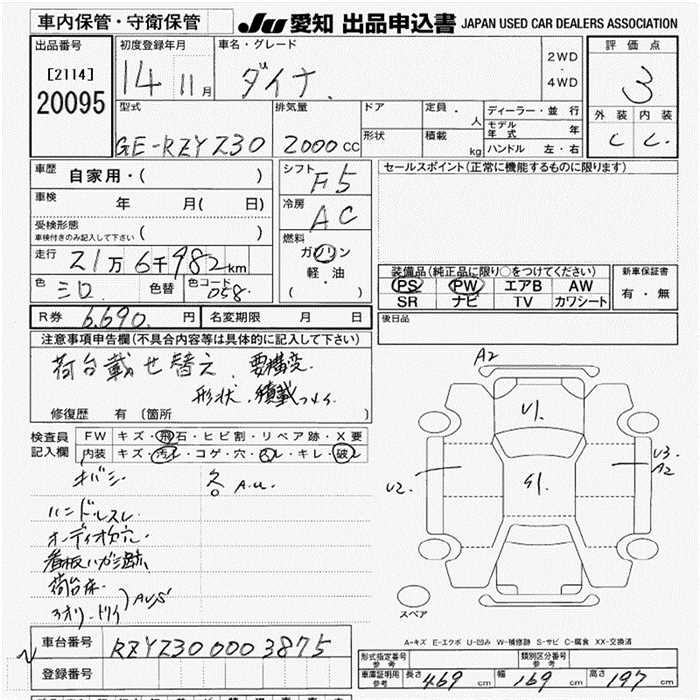 車内保管・守衛保管
JU 愛知 出品申込書 JAPAN USED CAR DEALERS ASSOCIATION
出品番号
[2114]
20095
初度登録年月
14 11月
車名・グレード
ダイナ
2WD
・
4WD
評価点
3
外装 内装
C C
型式
GE-RZYZ30
排気量
2000CC
ドア
形状
定員 人
積載 kg
ディーラー・並行
モデル年式 年
ハンドル 左・右
車歴 自家用・( )
車検 年 月( 日)
受検形態
車検付きのみ記入して下さい ( )
走行 21万6千982km
色 シロ 色替 色コード 058
シフト F5
冷房 AC
燃料
ガソリン
軽・油
( )
セールスポイント(正常に機能するものに限ります)
装備品(純正品に限り○をつけてください)
PS PW エアB AW
SR ナビ TV カワシート
新車保証書
有・無
R券 6,690円 名変期限 月 日
後日品
注意事項申告欄(不具合内容等は具体的に記入して下さい)
荷台載せ替え、要構変
形状、積載
修復歴 有 [箇所 ]
検査員
記入欄
FW キズ・飛石・ヒビ割・リペア跡・X要
内装 キズ・汚レ・コゲ・穴・スレ・キレ・破レ
ハンドルスレ
オーディオ次穴
看板ハガシ跡
荷台床
A2
U1
S1
U2
U3
A2
スペア
A-キズ E-エクボ U-凹み W-補修跡 S-サビ C-腐食 XX-交換済
車台番号 RZYZ30 0003875
登録番号
型式指定番号 参考
類別区分番号 参考
車庫証明用 参考
長さ 469 cm 幅 169 cm 高さ 197 cm